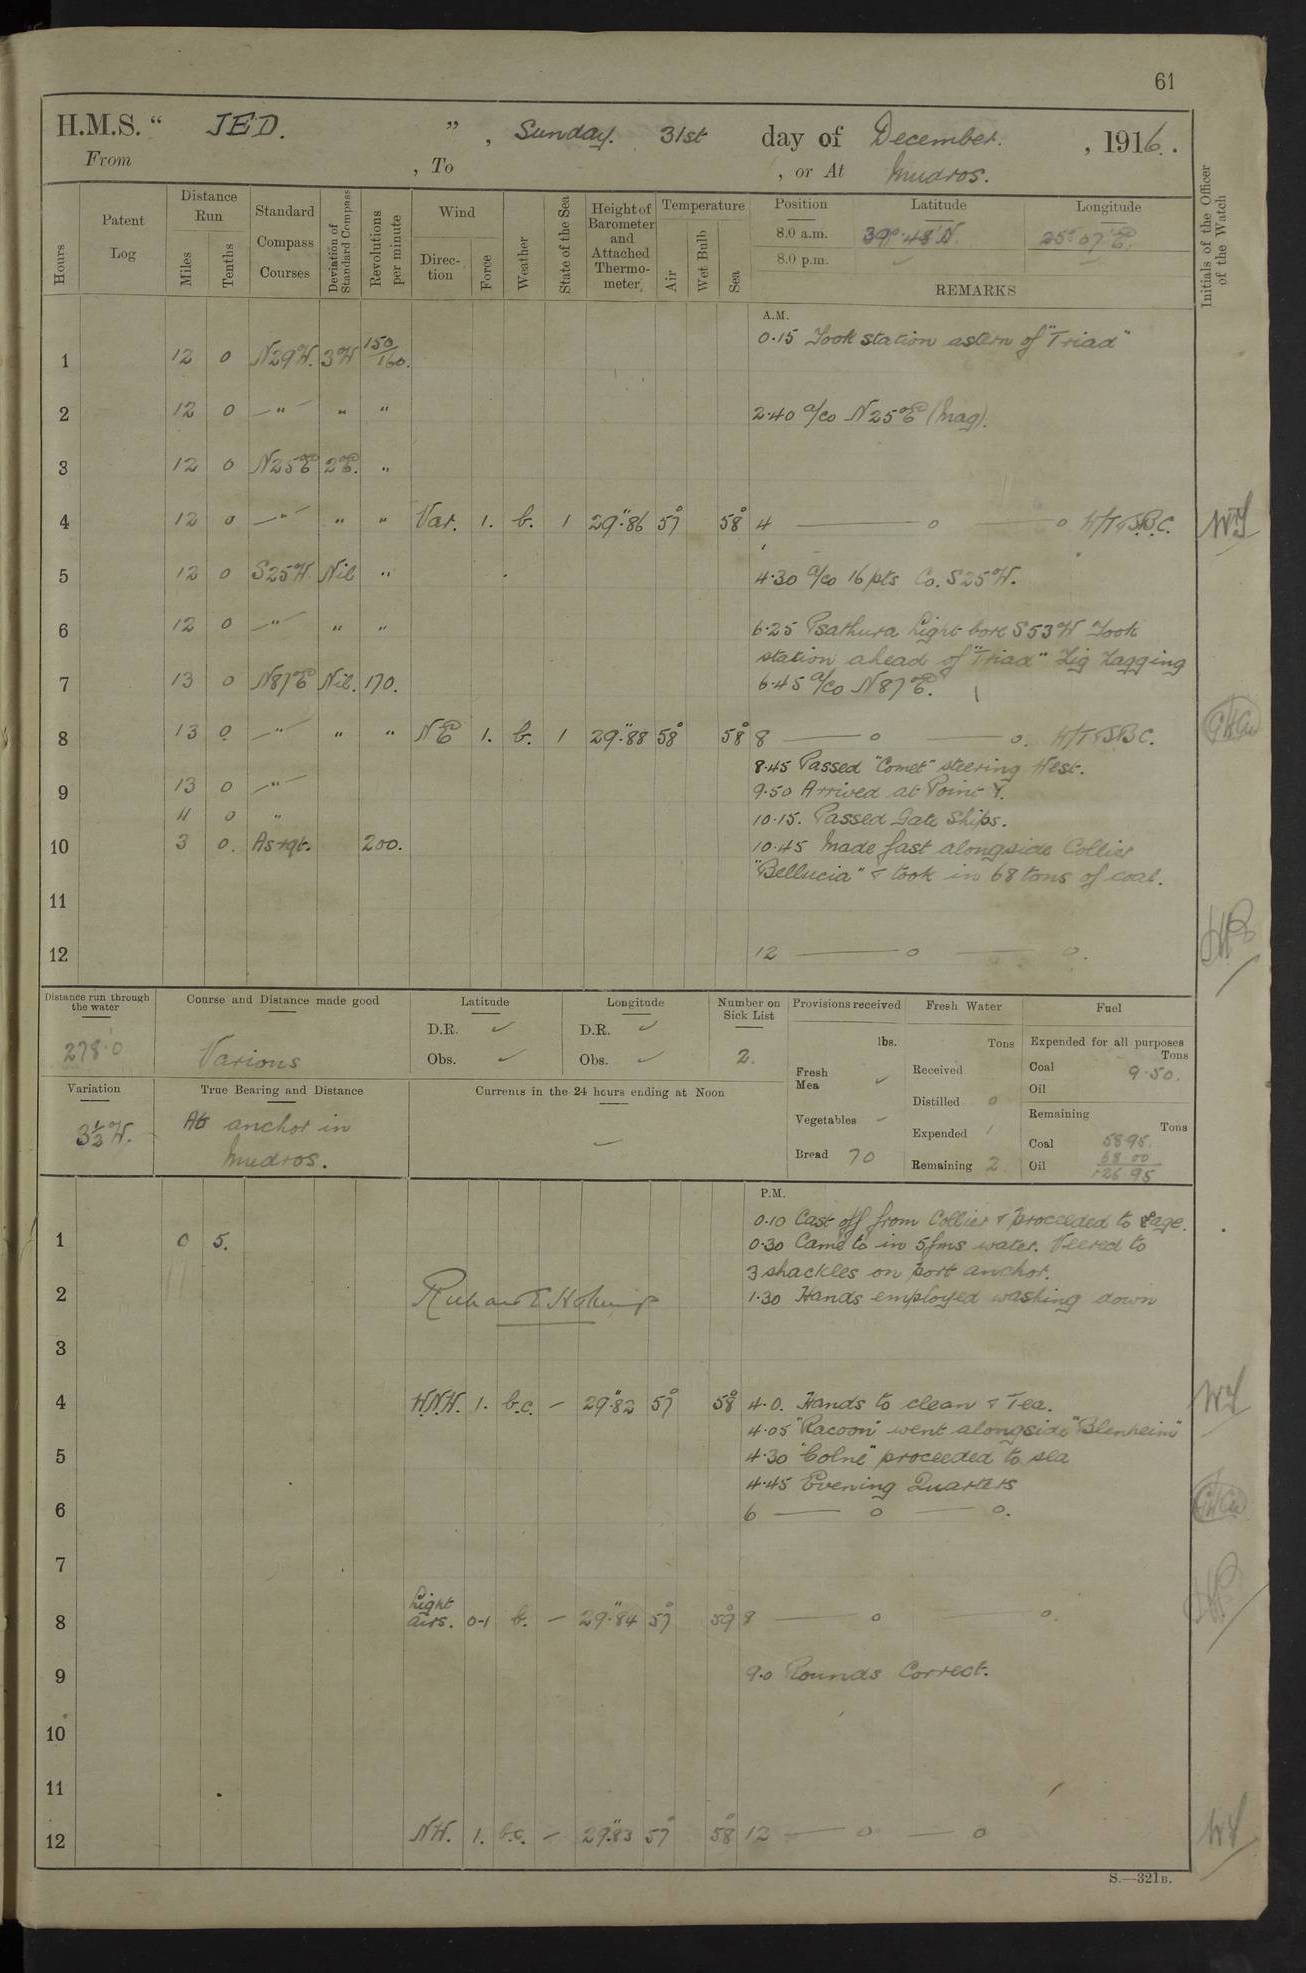 61
H.M.S. " JED. ", Sunday. 31st day of December. , 1916.
From , To , or At Mudros.
Hours
Patent Log
Distance Run
Miles
Tenths
Standard Compass Courses
Deviation of Standard Compass
Revolutions per minute
Wind
Direction
Force
Weather
State of the Sea
Height of Barometer and Attached Thermometer
Temperature
Air
Wet Bulb
Sea
Position Latitude Longitude
8.0 a.m. 39°.48'N. 25° 07'E.
8.0 p.m.
REMARKS
Initials of the Officer of the Watch
A.M.
0.15 Took station astern of "Triad"
1 12 0 N29°W. 3°W 150/160.
2 12 0 " " " 2.40 a/co N25°E (Mag).
3 12 0 N25°E 2°E. "
4 12 0 " " " Var. 1. b. 1 29".86 57° 58° 4 — o — o
5 12 0 S25°W Nil " 4.30 a/co 16 pts Co. S25°W.
6 12 0 " " " 6.25 Psathura Light bore S53°W Took
station ahead of "Triad" Zig Zagging
7 13 0 N87°E Nil. 170. 6.45 a/co N87°E.
8 13 0 " " " NE 1. b. 1 29".88 58° 58° 8 — o — o.
8.45 Passed "Comet" steering West.
9 13 0 " 9.50 Arrived at Point Y.
11 0 " 10.15. Passed Gate Ships.
10 3 0. As rqt. 200. 10.45 Made fast alongside Collier
"Bellucia" & took in 68 tons of coal.
11
12 12 — o — o.
Distance run through the water
278.0
Course and Distance made good
Various
Latitude
D.R. ✓
Obs. ✓
Longitude
D.R. ✓
Obs. ✓
Number on Sick List
2.
Provisions received
lbs.
Fresh Mea ✓
Vegetables -
Bread 70
Fresh Water
Tons
Received
Distilled 0
Expended
Remaining 2
Fuel
Expended for all purposes
Tons
Coal 9.50.
Oil
Remaining
Tons
Coal 58.95.
68.00
Oil 126.95
Variation
3½°W.
True Bearing and Distance
At anchor in
Mudros.
Currents in the 24 hours ending at Noon
P.M.
0.10 Cast off from Collier & proceeded to
1 0 5. 0.30 Came to in 5 fms water. Veered to
3 shackles on port anchor.
2 1.30 Hands employed washing down
3
4 W.N.W. 1. b.c. — 29".82 57° 58° 4.0. Hands to clean & Tea.
4.05 "Racoon" went alongside "Blenheim"
5 4.30 "Colne" proceeded to sea
4.45 Evening Quarters
6 6 — o — o.
7
8 Light airs. 0-1 b. — 29".84 57° 59° 8 — o — o.
9 9.0 Rounds Correct.
10
11
12 NW. 1. b.c. — 29".83 57° 58° 12 — o — o
S.—321B.